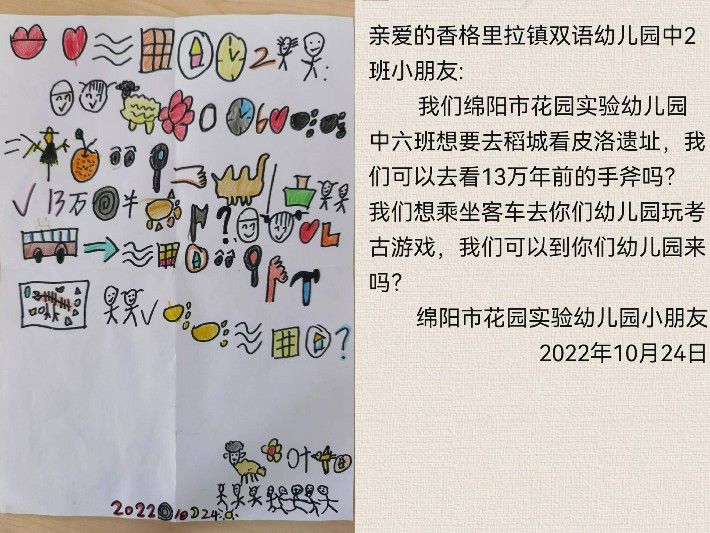 2
:
0
6
?
13万
半
?
2022 10 24
叶
亲爱的香格里拉镇双语幼儿园中2
班小朋友:
我们绵阳市花园实验幼儿园
中六班想要去稻城看皮洛遗址，我
们可以去看13万年前的手斧吗？
我们想乘坐客车去你们幼儿园玩考
古游戏，我们可以到你们幼儿园来
吗？
绵阳市花园实验幼儿园小朋友
2022年10月24日